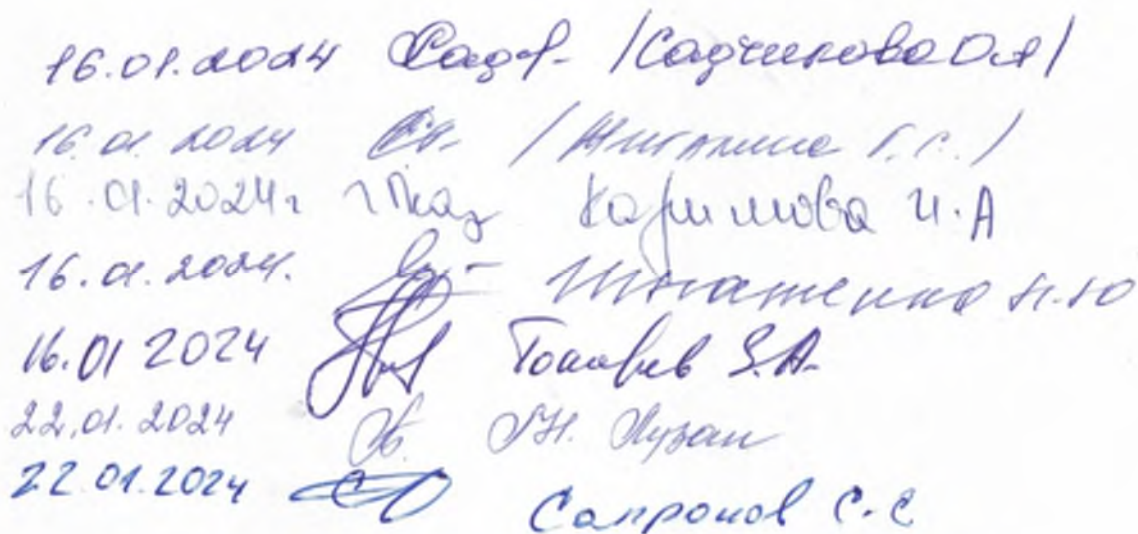 16.01.2024 Садч- /Садчикова О.А/
16.01.2024 / Г.С./
16.01.2024г Каримова И.А
16.01.2024. Игнатенко Н.Ю
16.01 2024 Токарев З.А.
22.01.2024 Лузан
22.01.2024 Сапронов С.С